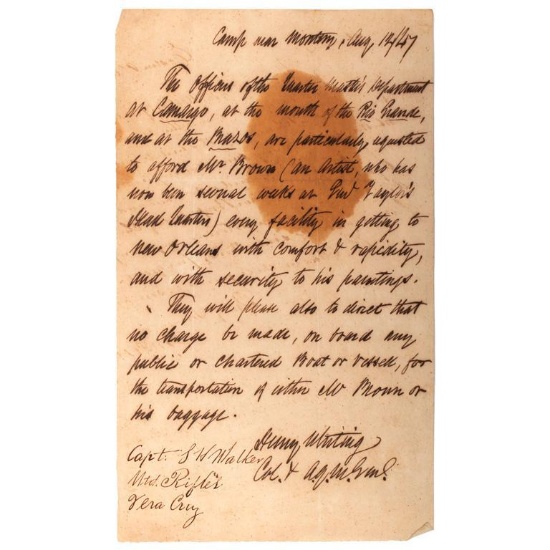 Camp near Monterey, Aug, 12/47
The Officers of the Quarter Master's Department
at Camargo, at the mouth of the Rio Grande,
and at the Brazos, are particularly requested
to afford Mr Brown (an Artist, who has
now been several weeks at Genl Taylor's
Head Quarters) every facility in getting to
New Orleans with comfort & rapidity,
and with security to his paintings.
They will please also to direct that
no charge be made, on board any
public or chartered Boat or vessel, for
the transportation of either Mr Brown or
his baggage.
Henry Whiting
Col. & A.Q.M. Genl.
Capt. S W Walker
Mtd. Rifles
Vera Cruz